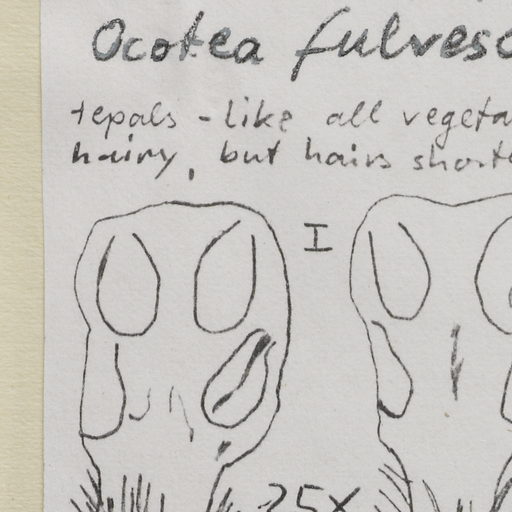 Ocotea fulvesc
tepals - like all vegeta
hairy, but hairs shorte
I
25X